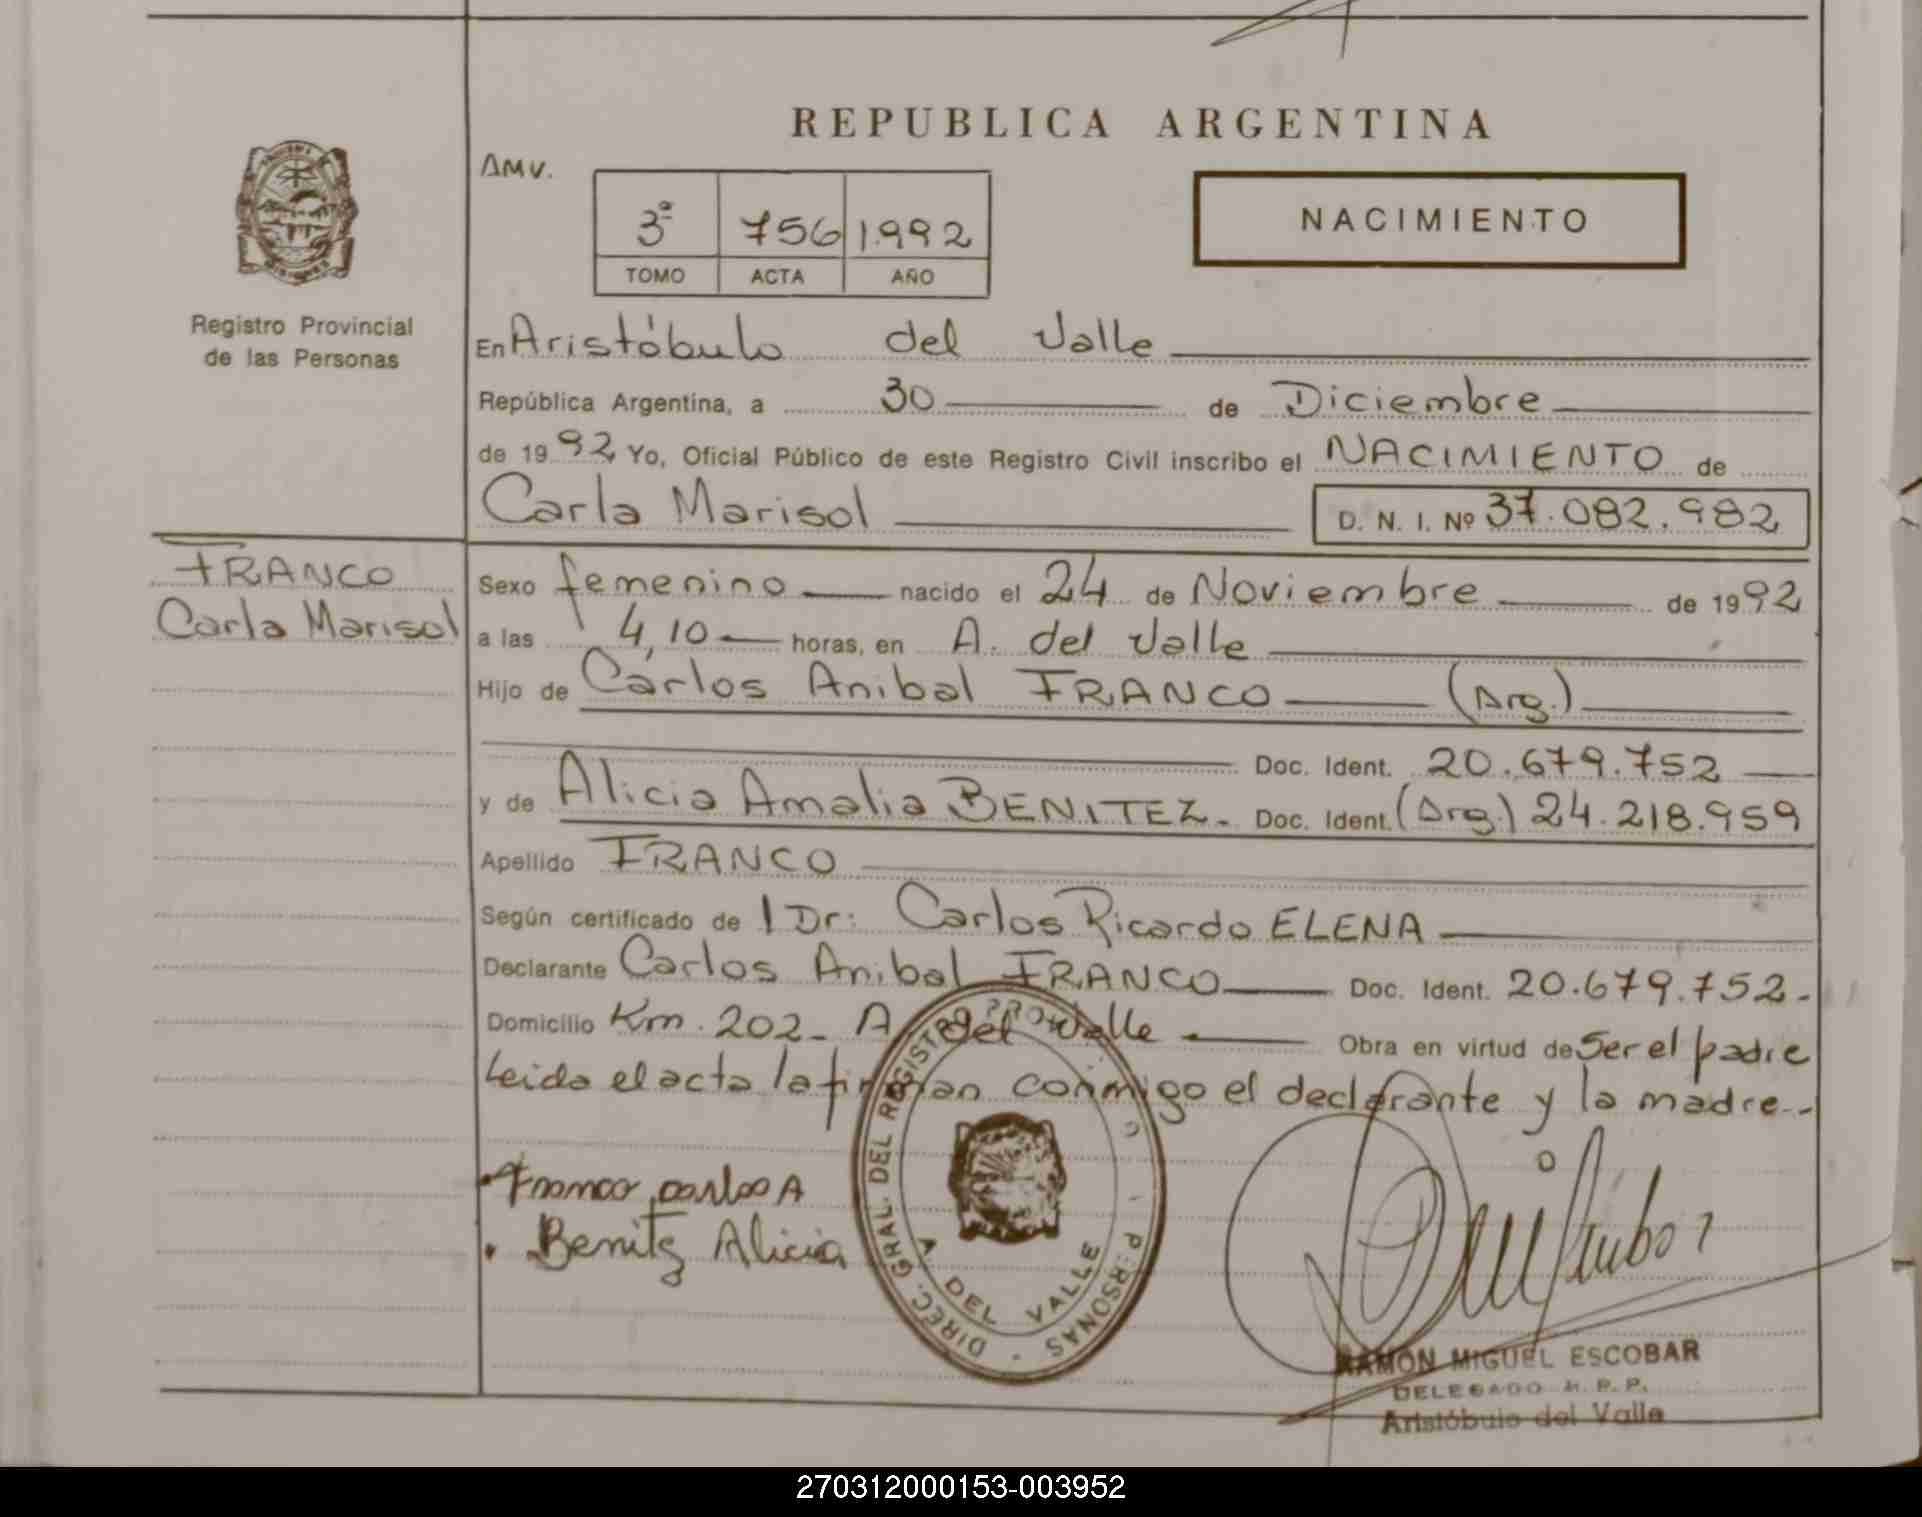 REPUBLICA ARGENTINA
AMV.
3ª 756 1.992
TOMO ACTA AÑO
NACIMIENTO
Registro Provincial
de las Personas
En Aristóbulo del Valle
República Argentina, a 30 de Diciembre
de 1992 Yo, Oficial Público de este Registro Civil inscribo el NACIMIENTO de
Carla Marisol D. N. I. Nº 37.082.982
FRANCO
Carla Marisol
Sexo femenino nacido el 24 de Noviembre de 1992
a las 4,10 horas, en A. del Valle
Hijo de Carlos Anibal FRANCO (Arg.)
Doc. Ident. 20.679.752
y de Alicia Amalia BENITEZ. Doc. Ident. (Arg.) 24.218.959
Apellido FRANCO
Según certificado de l Dr: Carlos Ricardo ELENA
Declarante Carlos Anibal FRANCO Doc. Ident. 20.679.752.
Domicilio Km. 202 - A. del Valle Obra en virtud de Ser el padre
Leida el acta la firman conmigo el declarante y la madre.-
Franco Carlos A
Benitz Alicia
DIREC. GRAL. DEL REGISTRO PERSONAS
A DEL VALLE
RAMON MIGUEL ESCOBAR
DELEGADO R.P.P.
Aristóbulo del Valle
270312000153-003952